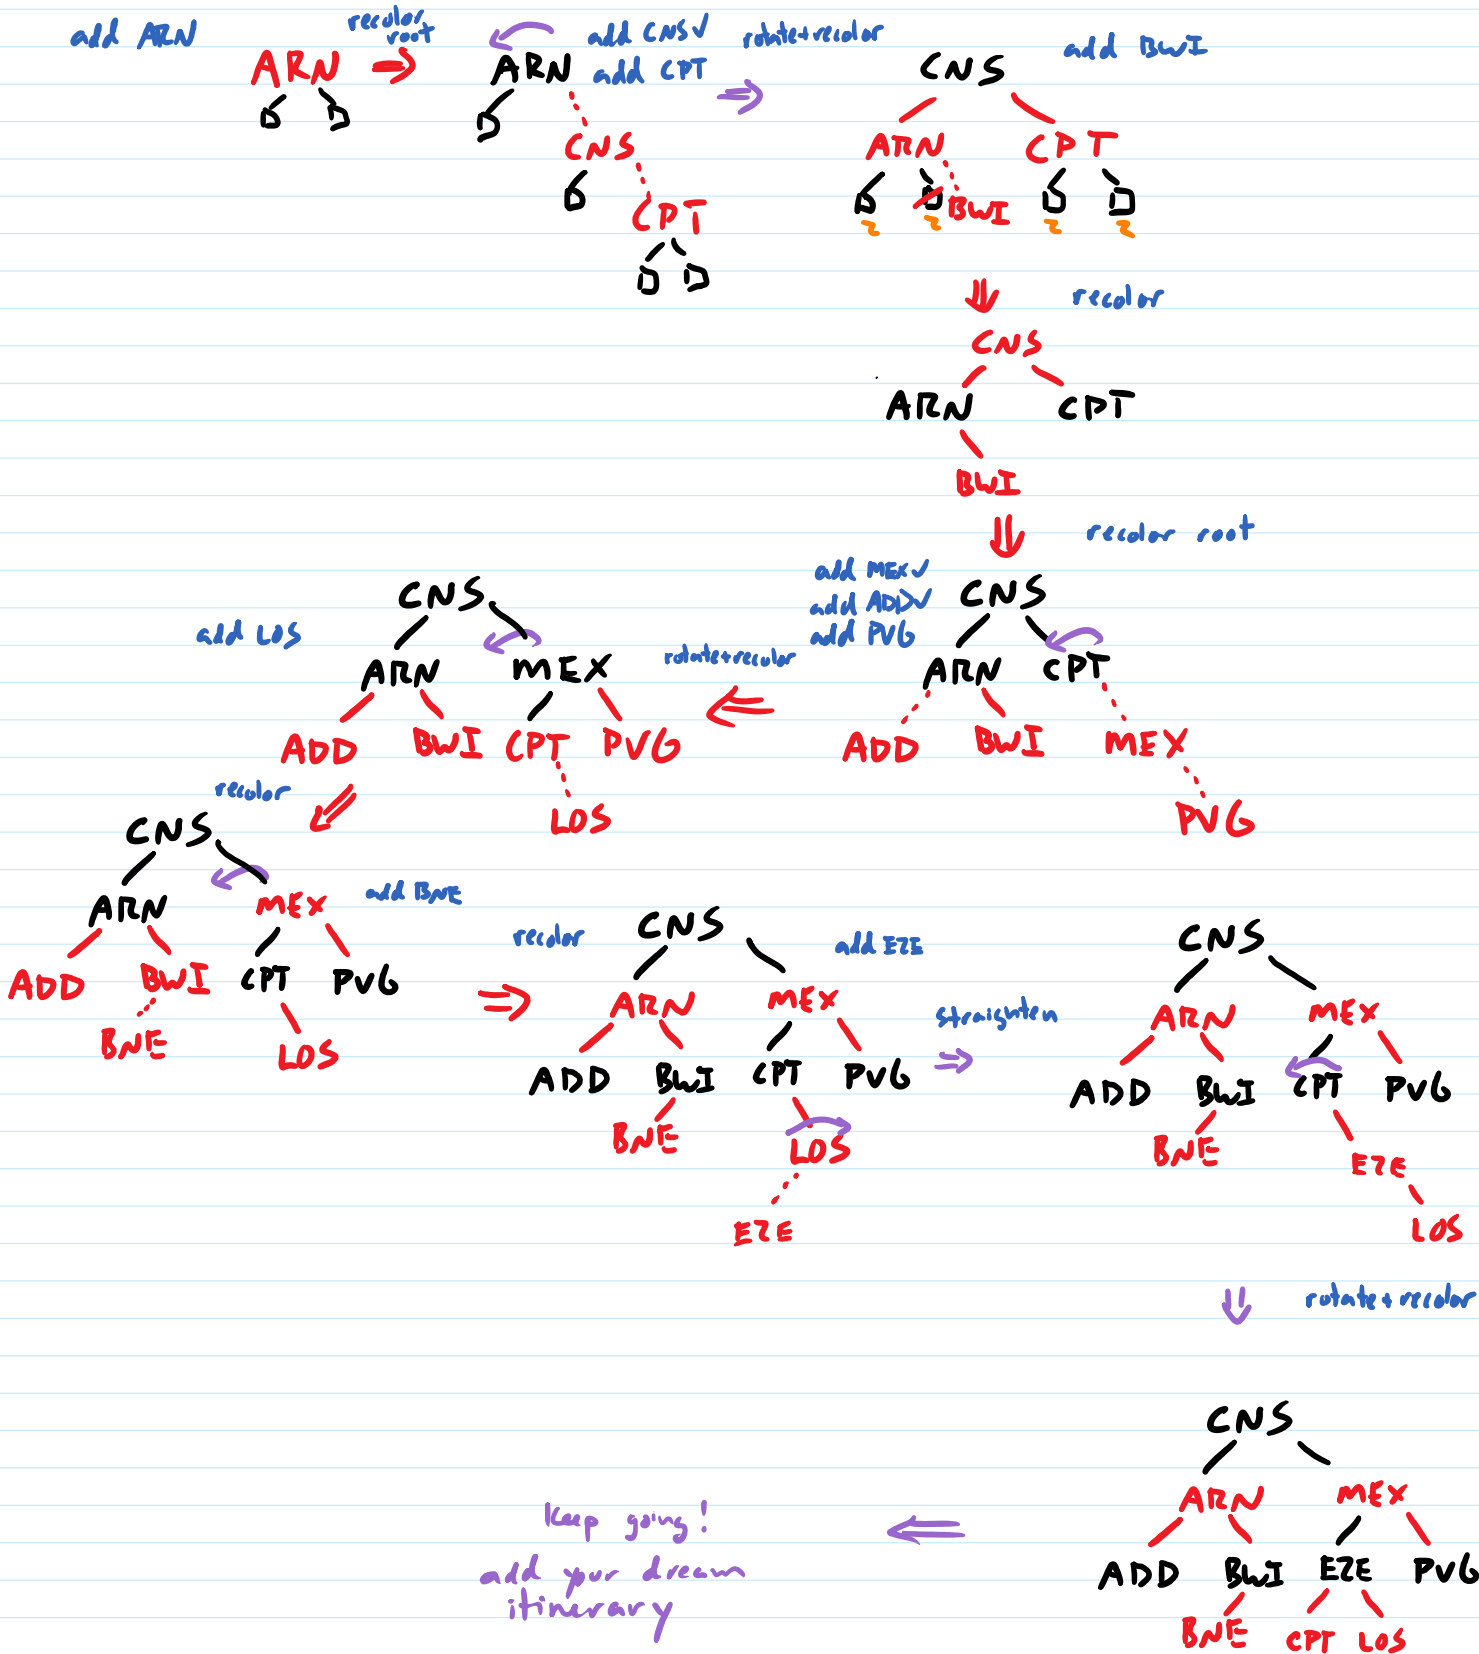 add ARN
ARN
recolor root
ARN
CNS
CPT
add CNS✓
add CPT
rotate+recolor
CNS
ARN CPT
BWI
2 2 2 2
add BWI
recolor
CNS
ARN CPT
BWI
recolor root
add MEX✓
add ADD✓
add PVG
CNS
ARN CPT
ADD BWI MEX
PVG
rotate+recolor
CNS
add LOS
ARN MEX
ADD BWI CPT PVG
LOS
recolor
CNS
ARN MEX
ADD BWI CPT PVG
BNE LOS
add BNE
recolor
CNS
ARN MEX
ADD BWI CPT PVG
BNE LOS
EZE
add EZE
straighten
CNS
ARN MEX
ADD BWI CPT PVG
BNE EZE
LOS
rotate+recolor
CNS
ARN MEX
ADD BWI EZE PVG
BNE CPT LOS
Keep going!
add your dream
itinerary